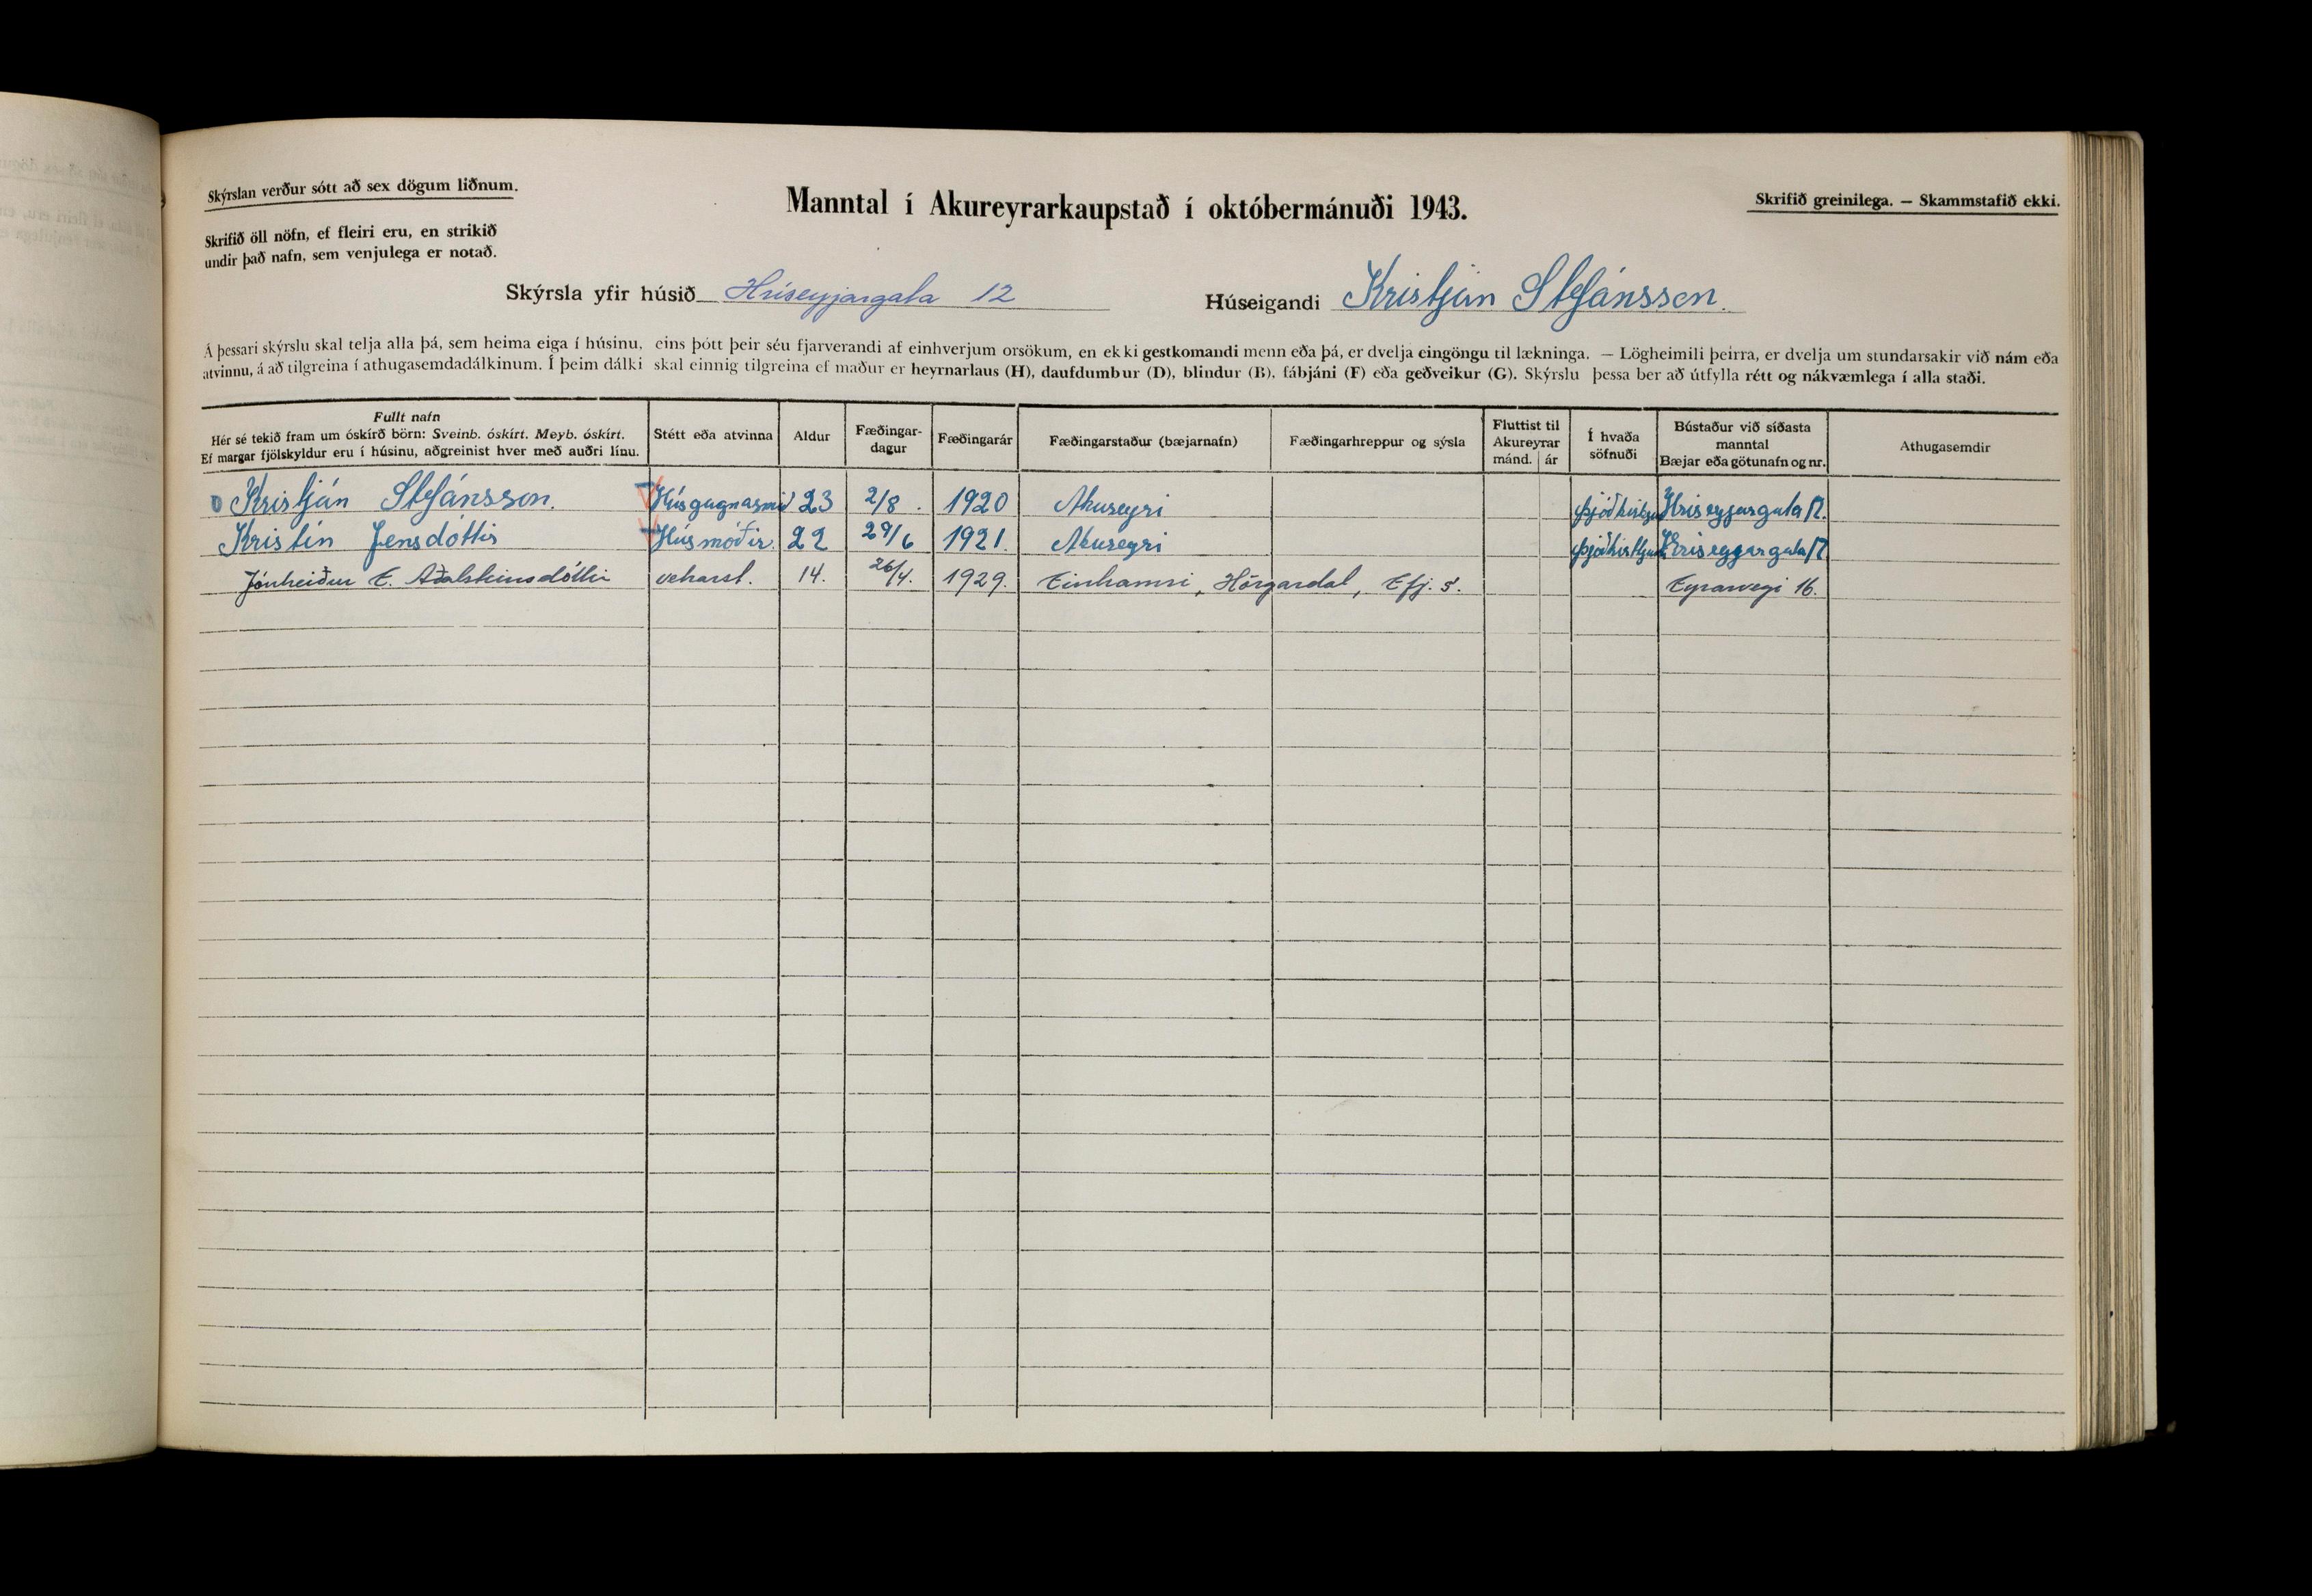 Skýrslan verður sótt að sex dögum liðnum.
Manntal í Akureyrarkaupstað í októbermánuði 1943.
Skrifið greinilega. — Skammstafið ekki.
Skrifið öll nöfn, ef fleiri eru, en strikið
undir það nafn, sem venjulega er notað.
Skýrsla yfir húsið Hríseyjargata 12
Húseigandi Kristján Stefánsson.
Á þessari skýrslu skal telja alla þá, sem heima eiga í húsinu, eins þótt þeir séu fjarverandi af einhverjum orsökum, en ekki gestkomandi menn eða þá, er dvelja eingöngu til lækninga. — Lögheimili þeirra, er dvelja um stundarsakir við nám eða
atvinnu, á að tilgreina í athugasemdadálkinum. Í þeim dálki skal einnig tilgreina ef maður er heyrnarlaus (H), daufdumbur (D), blindur (B), fábjáni (F) eða geðveikur (G). Skýrslu þessa ber að útfylla rétt og nákvæmlega í alla staði.
Fullt nafn
Hér sé tekið fram um óskírð börn: Sveinb. óskírt. Meyb. óskírt.
Ef margar fjölskyldur eru í húsinu, aðgreinist hver með auðri línu.
Stétt eða atvinna
Aldur
Fæðingar-
dagur
Fæðingarár
Fæðingarstaður (bæjarnafn)
Fæðingarhreppur og sýsla
Fluttist til
Akureyrar
mánd. ár
Í hvaða
söfnuði
Bústaður við síðasta
manntal
Bæjar eða götunafn og nr.
Athugasemdir
Kristján Stefánsson. Húsgagnasmið 23 2/8. 1920 Akureyri Hríseyjargata 12.
Kristín Jensdóttir Húsmóðir. 22 29/6 1921. Akureyri Hríseyjargata 12
Jónheiður E. Aðalsteinsdóttir 14. 26/4. 1929. Einhamri, Hörgardal, Efj. s. Eyrarvegi 16.